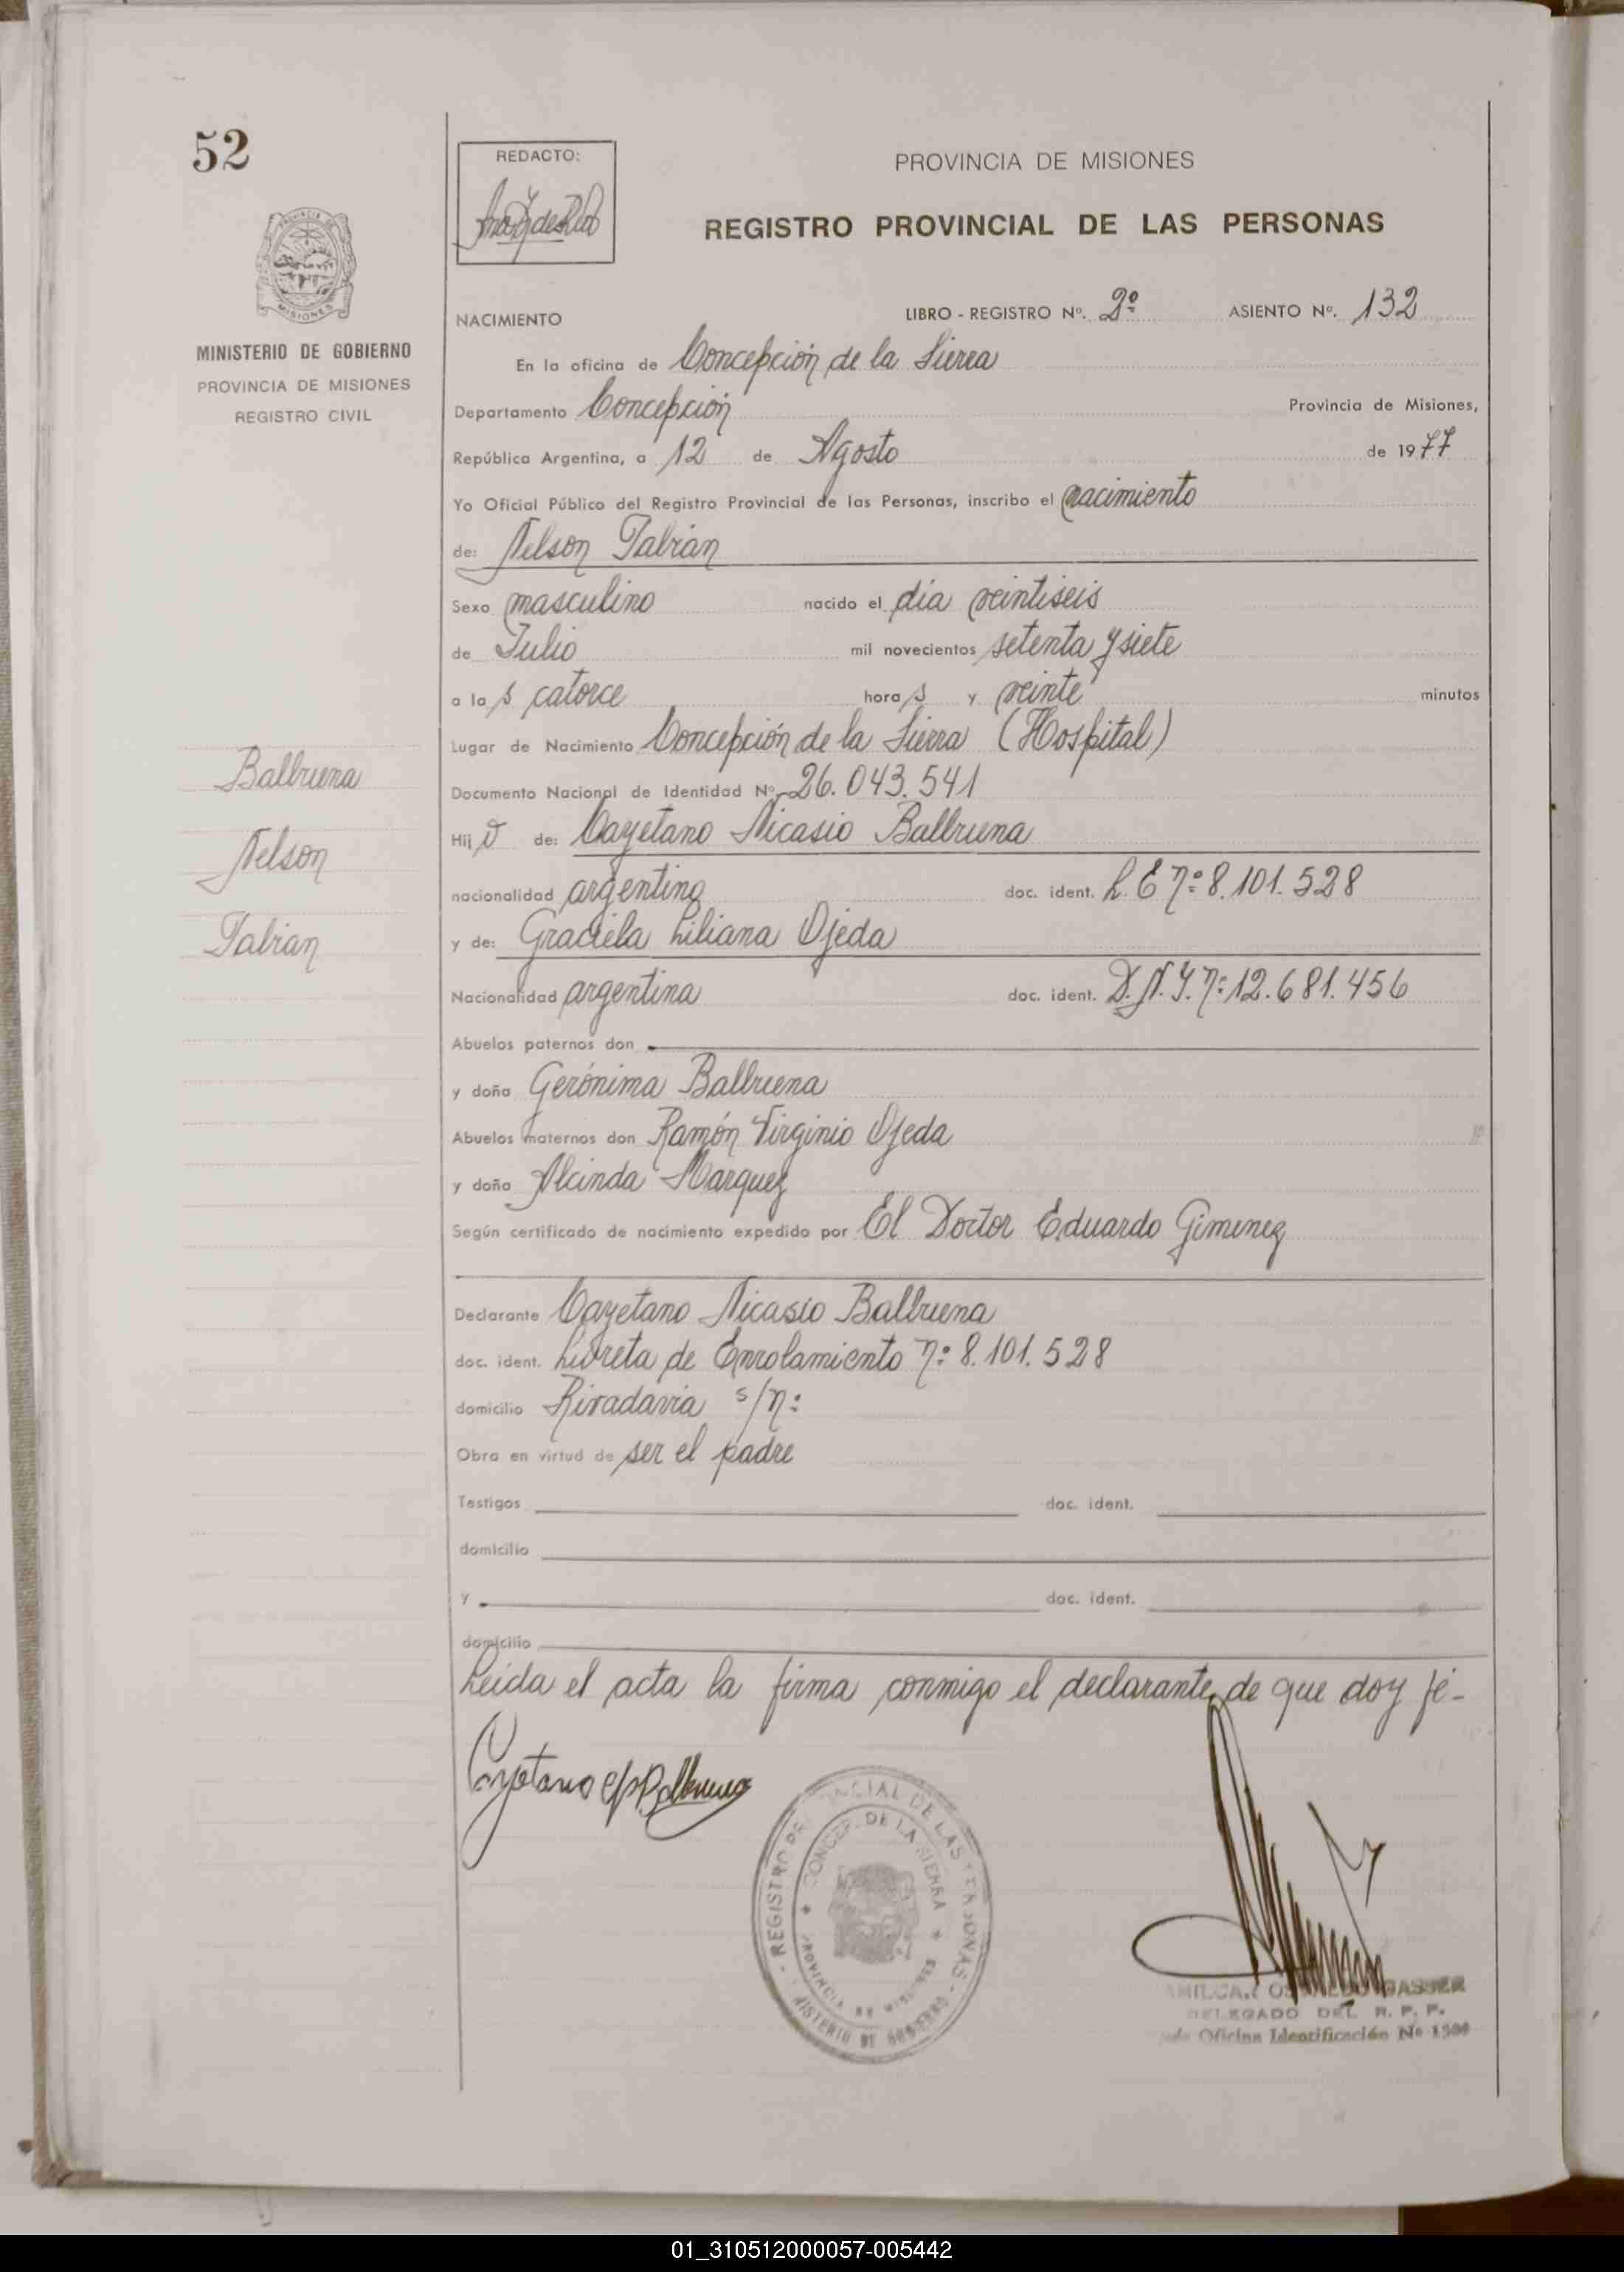 52
REDACTO:
PROVINCIA DE MISIONES
REGISTRO PROVINCIAL DE LAS PERSONAS
MISIONES
MINISTERIO DE GOBIERNO
PROVINCIA DE MISIONES
REGISTRO CIVIL
NACIMIENTO LIBRO - REGISTRO Nº. 2º ASIENTO Nº. 132
En la oficina de Concepción de la Sierra
Departamento Concepción Provincia de Misiones,
República Argentina, a 12 de Agosto de 1977
Yo Oficial Público del Registro Provincial de las Personas, inscribo el nacimiento
de: Nelson Fabián
Sexo masculino nacido el día veintiseis
de Julio mil novecientos setenta y siete
a las catorce horas y veinte minutos
Lugar de Nacimiento Concepción de la Sierra (Hospital)
Documento Nacional de Identidad Nº 26.043.541
Hijo de: Cayetano Nicasio Balbuena
nacionalidad argentino doc. ident. L.E nº 8.101.528
y de: Graciela Liliana Ojeda
Nacionalidad argentina doc. ident. D.N.I. nº 12.681.456
Abuelos paternos don
y doña Gerónima Balbuena
Abuelos maternos don Ramón Virginio Ojeda
y doña Alcinda Marquez
Según certificado de nacimiento expedido por El Doctor Eduardo Gimenez
Declarante Cayetano Nicasio Balbuena
doc. ident. Libreta de Enrolamiento nº 8.101.528
domicilio Rivadavia s/nº
Obra en virtud de ser el padre
Testigos doc. ident.
domicilio
y doc. ident.
domicilio
Leida el acta la firma conmigo el declarante, de que doy fé-
Balbuena
Nelson
Fabian
Cayetano N Balbuena
REGISTRO PROVINCIAL DE LAS PERSONAS
CONCEP. DE LA SIERRA
PROVINCIA DE MISIONES
MINISTERIO DE GOBIERNO
GASSER
DELEGADO DEL R. P. P.
Oficina Identificación Nº
01_310512000057-005442